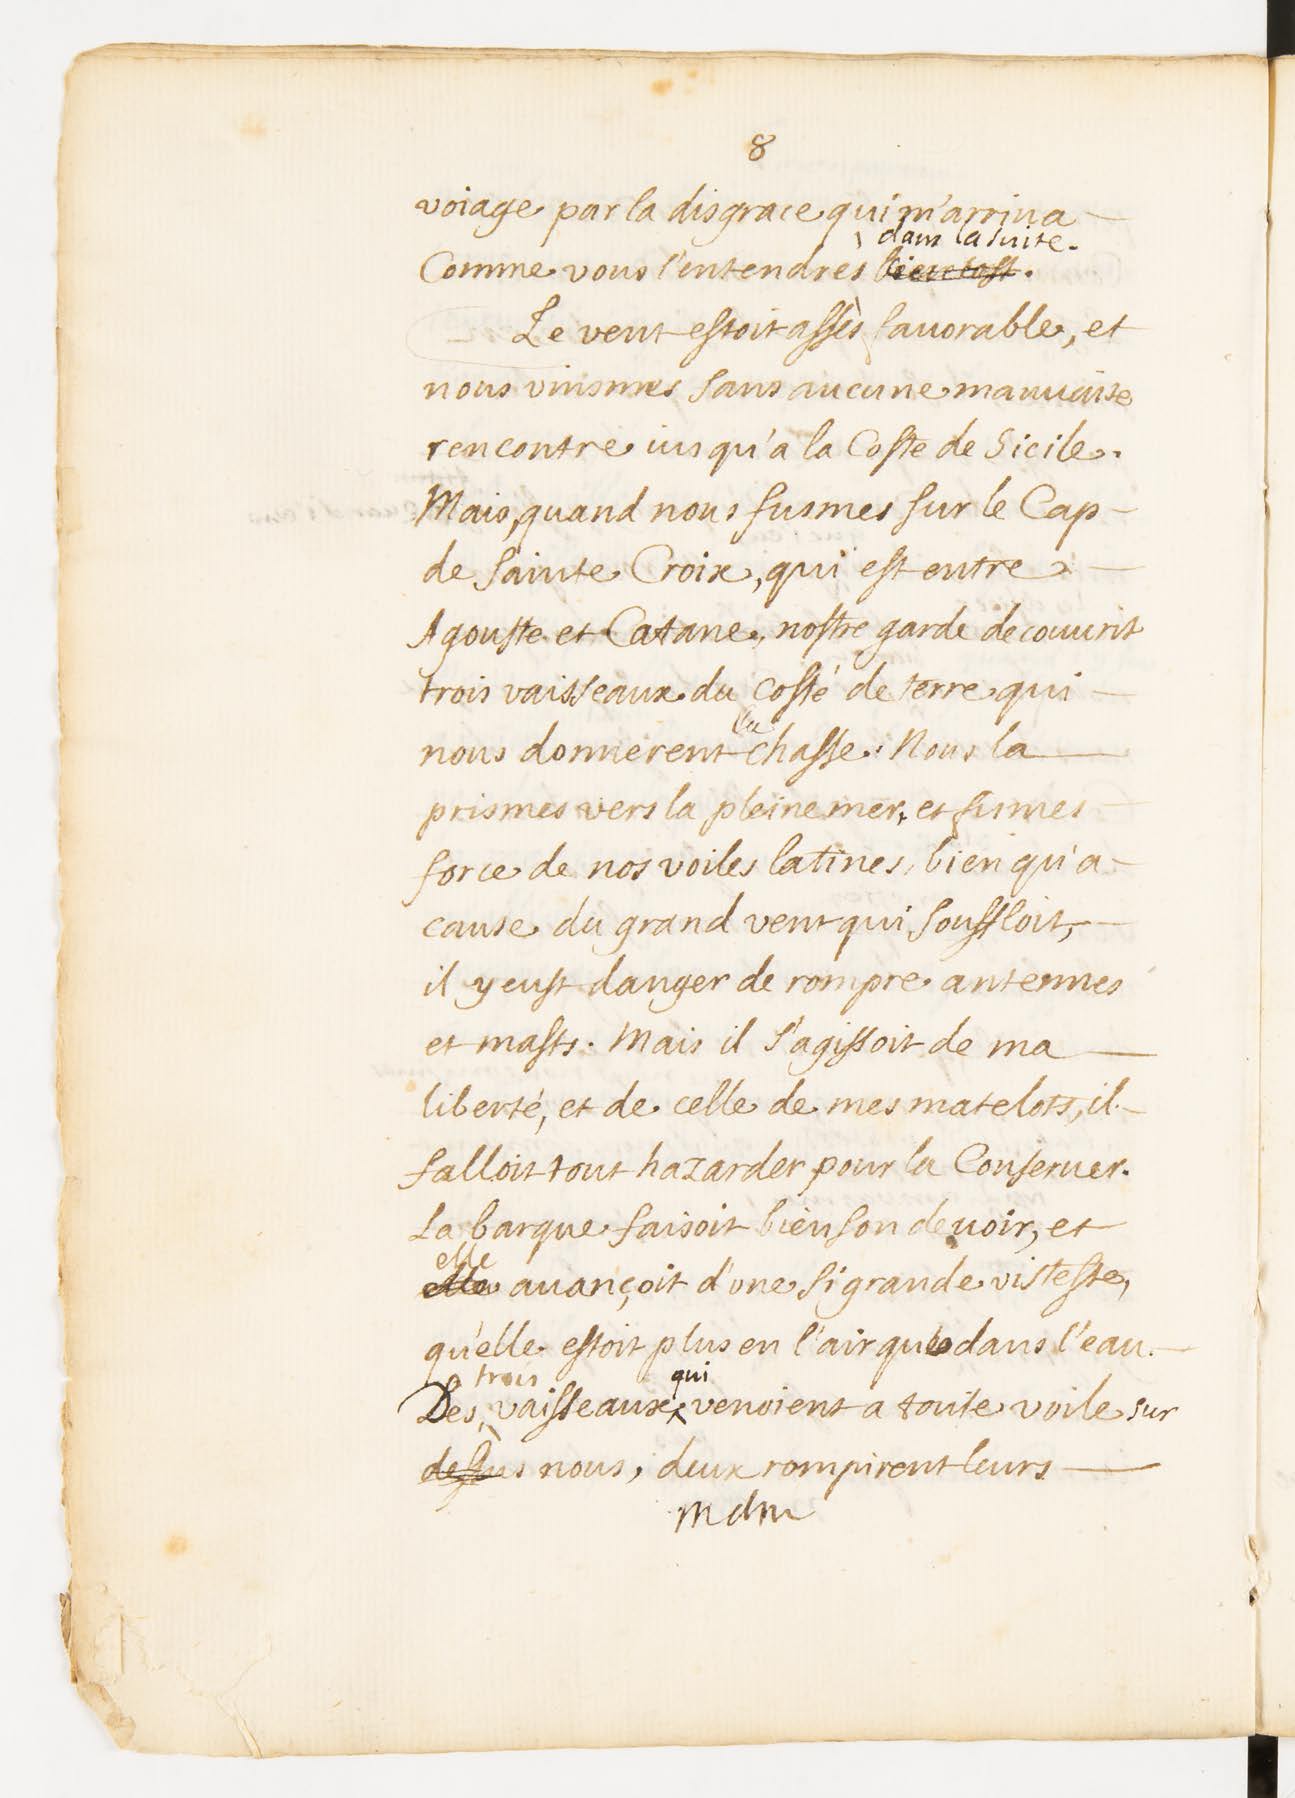 8
voiage par la disgrace qui m'arriua
dans la suite.
Comme vous l'entendrés bien tost.
Le vent estoit assés fauorable, et
nous vinsmes sans aucune mauuaise
rencontre iusqu'a la Coste de Sicile.
Mais, quand nous fusmes sur le Cap
de Sainte Croix, qui est entre
Agouste et Catane, nostre garde decouurit
trois vaisseaux du costé de terre qui
la
nous donnerent chasse. Nous la
prismes vers la pleine mer, et fismes
force de nos voiles latines, bien qu'a
cause du grand vent qui souffloit,
il y eust danger de rompre antennes
et masts. Mais il s'agissoit de ma
liberté, et de celle de mes matelots, il
falloit tout hazarder pour la Conseruer.
La barque faisoit bien son deuoir, et
elle
elle auançoit d'une si grande vistesse,
qu'elle estoit plus en l'air que dans l'eau.
trois qui
Des vaisseaux venoient a toute voile sur
dessus nous, deux rompirent leurs